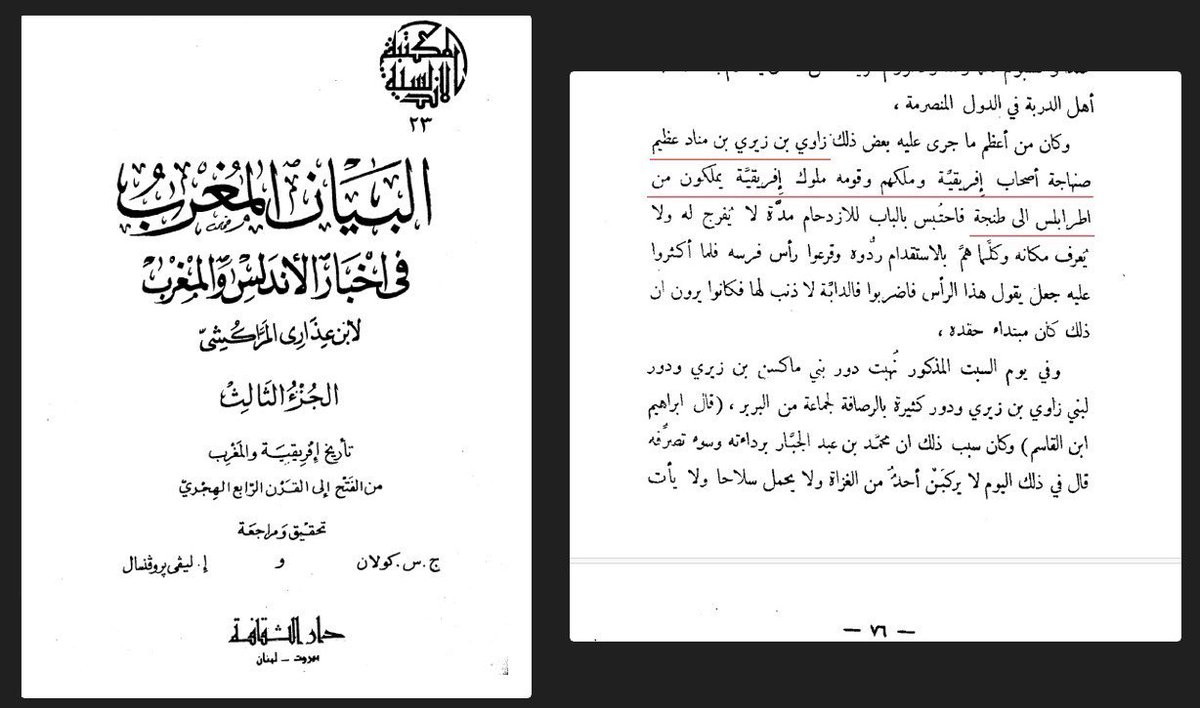 المكتبة
الاندلسية
٢٣
البيان المغرب
في اخبار الأندلس والمغرب
لابن عذارى المراكشى
الجزء الثالث
تأريخ إفريقية والمغرب
من الفتح إلى القرن الرابع الهجري
تحقيق ومراجعة
ج. س. كولان و إ. ليفى پروڤنسال
دار الثقافة
بيروت - لبنان
أهل الدربة في الدول المنصرمة ،
وكان من أعظم ما جرى عليه بعض ذلك زاوي بن زيري بن مناد عظيم
صنهاجة أصحاب إفريقيَّة وملكهم وقومه ملوك إفريقيَّة يملكون من
اطرابلس الى طنجة فاحتُبس بالباب للازدحام مدَّة لا يُفرج له ولا
يُعرف مكانه وكلَّما همَّ بالاستقدام ردُّوه وقرعوا رأس فرسه فلما أكثروا
عليه جعل يقول هذا الرأس فاضربوا فالدابَّة لا ذنب لها فكانوا يرون ان
ذلك كان مبتداء حقده ،
وفي يوم السبت المذكور نُهبت دور بني ماكسن بن زيري ودور
لبني زاوي بن زيري ودور كثيرة بالرصافة لجماعة من البربر ، (قال ابراهيم
ابن القاسم) وكان سبب ذلك ان محمّد بن عبد الجبَّار برداءته وسوء تصرُّفه
قال في ذلك اليوم لا يركبَنْ أحدٌ من الغزاة ولا يحمل سلاحا ولا يأت
— ٧٦ —